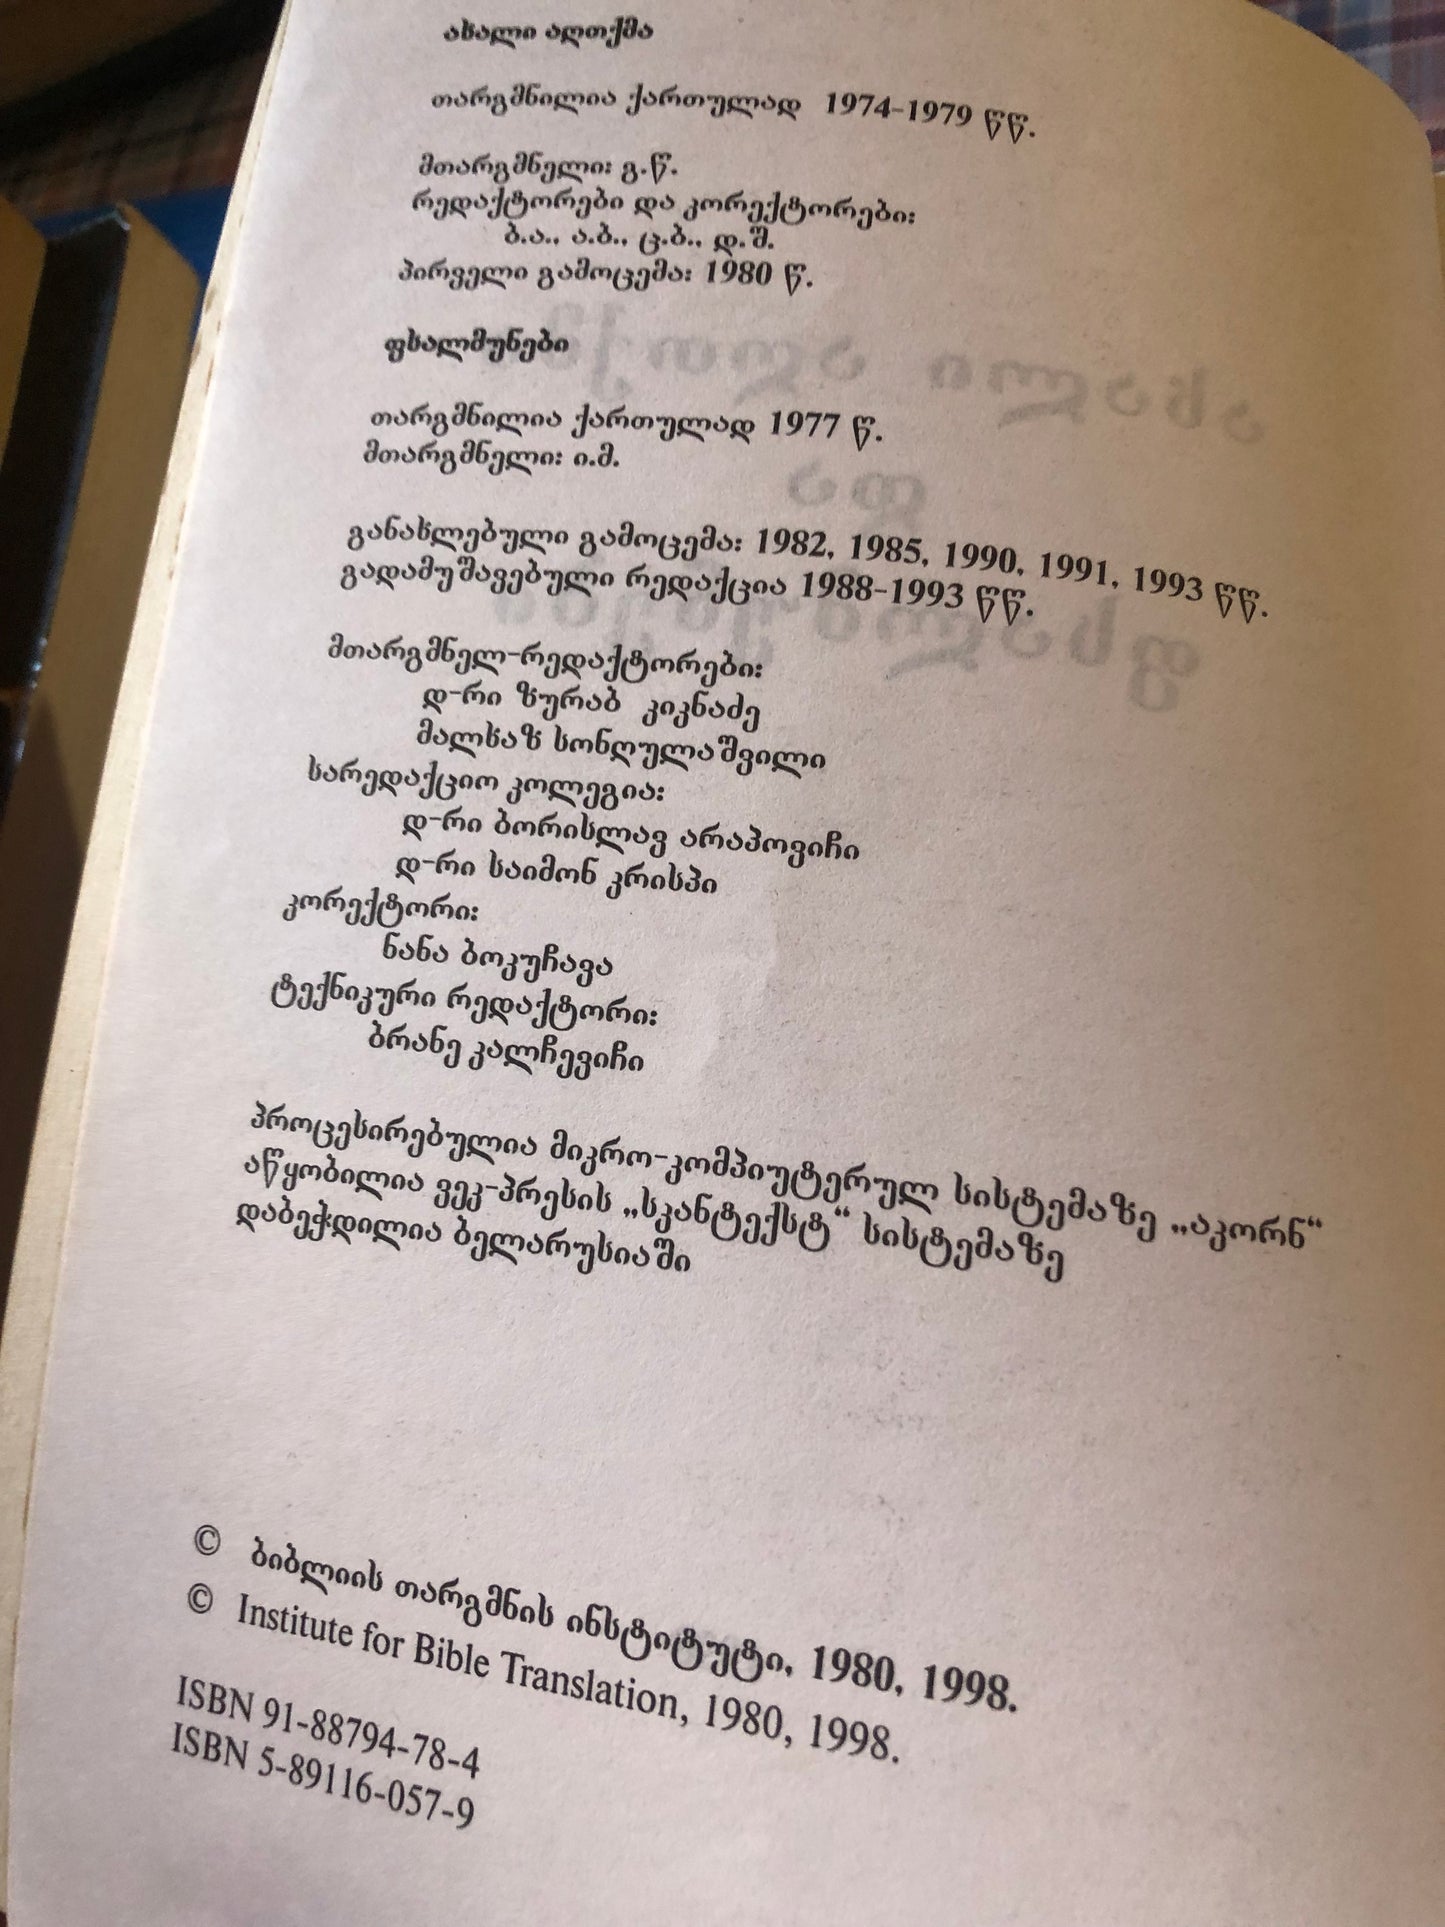 ახალი აღთქმა
თარგმნილია ქართულად 1974-1979 წწ.
მთარგმნელი: გ.წ.
რედაქტორები და კორექტორები:
ბ.ა., ა.ბ., ც.ბ., დ.შ.
პირველი გამოცემა: 1980 წ.
ფსალმუნები
თარგმნილია ქართულად 1977 წ.
მთარგმნელი: ი.მ.
განახლებული გამოცემა: 1982, 1985, 1990, 1991, 1993 წწ.
გადამუშავებული რედაქცია 1988-1993 წწ.
მთარგმნელ-რედაქტორები:
დ-რი ზურაბ კიკნაძე
მალხაზ სონღულაშვილი
სარედაქციო კოლეგია:
დ-რი ბორისლავ არაპოვიჩი
დ-რი საიმონ კრისპი
კორექტორი:
ნანა ბოკუჩავა
ტექნიკური რედაქტორი:
ბრანე კალჩევიჩი
პროცესირებულია მიკრო-კომპიუტერულ სისტემაზე „აკორნ“
აწყობილია ვეკ-პრესის „სკანტექსტ“ სისტემაზე
დაბეჭდილია ბელარუსიაში
© ბიბლიის თარგმნის ინსტიტუტი, 1980, 1998.
© Institute for Bible Translation, 1980, 1998.
ISBN 91-88794-78-4
ISBN 5-89116-057-9